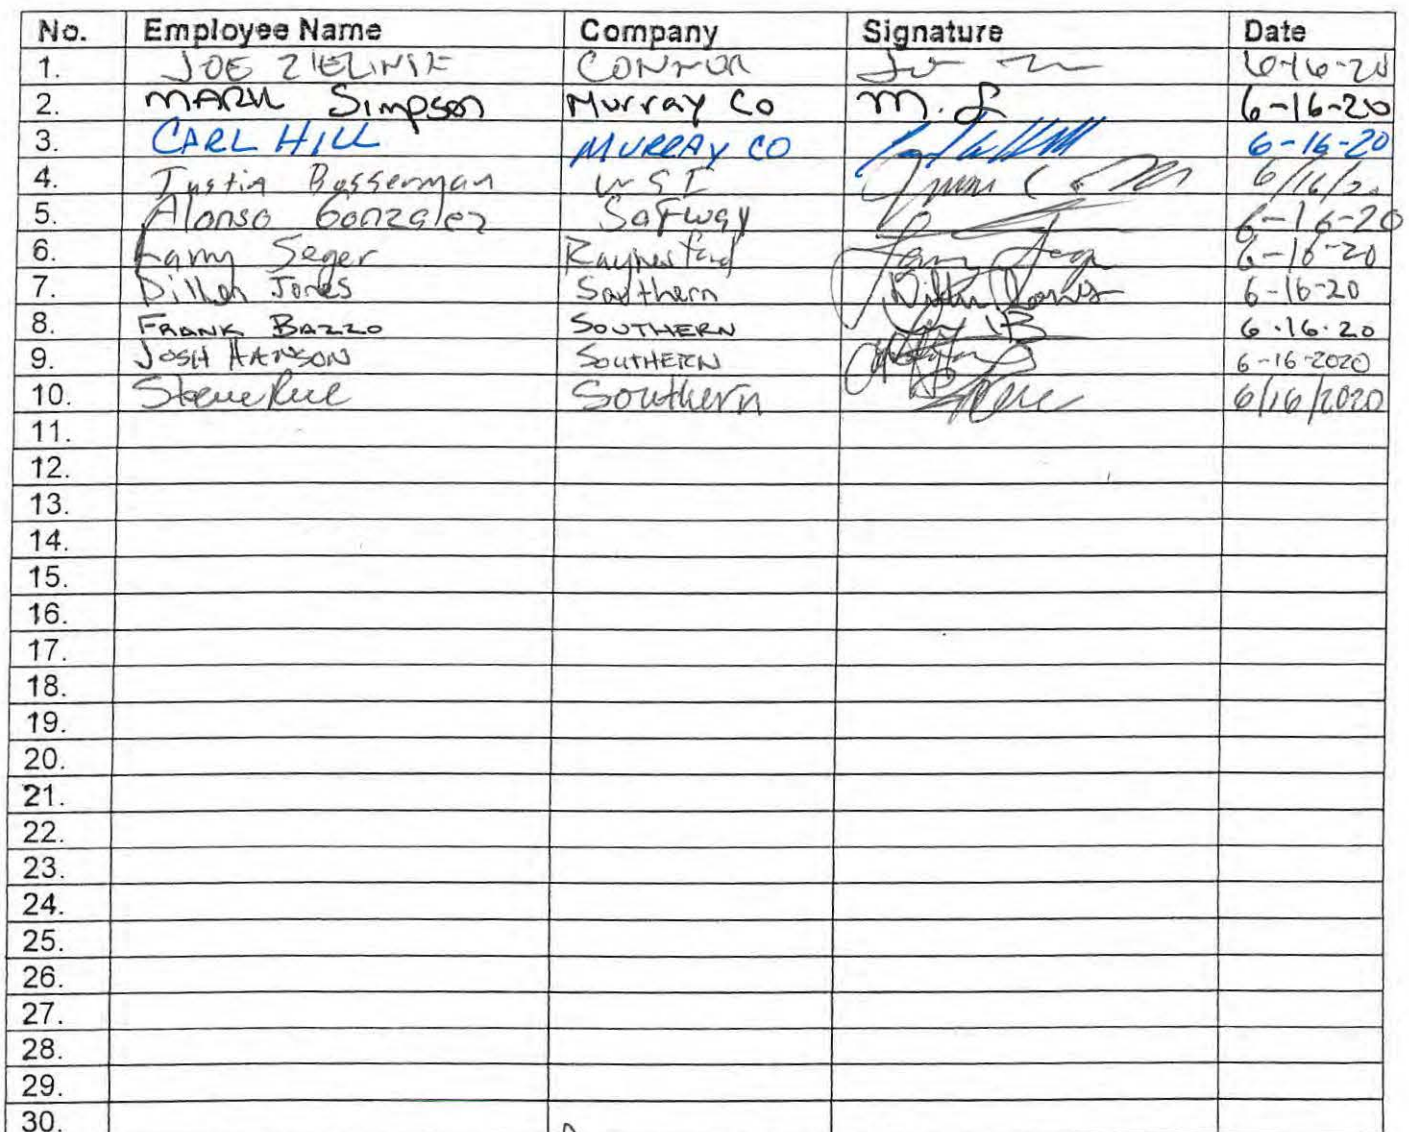 No. Employee Name Company Signature Date
1. JOE ZIELINSK CONNOR 6-16-20
2. MARK Simpson Murray Co M. S 6-16-20
3. CARL HILL MURRAY CO 6-16-20
4. Justin Bosserman WSI 6/16/20
5. Alonso Gonzalez Safway 6-16-20
6. Larry Seger 6-16-20
7. Dillon Jones Southern Dillon Jones 6-16-20
8. FRANK BAZZO SOUTHERN 6.16.20
9. JOSH HANSON SOUTHERN 6-16-2020
10. Steve Southern 6/16/2020
11.
12.
13.
14.
15.
16.
17.
18.
19.
20.
21.
22.
23.
24.
25.
26.
27.
28.
29.
30.